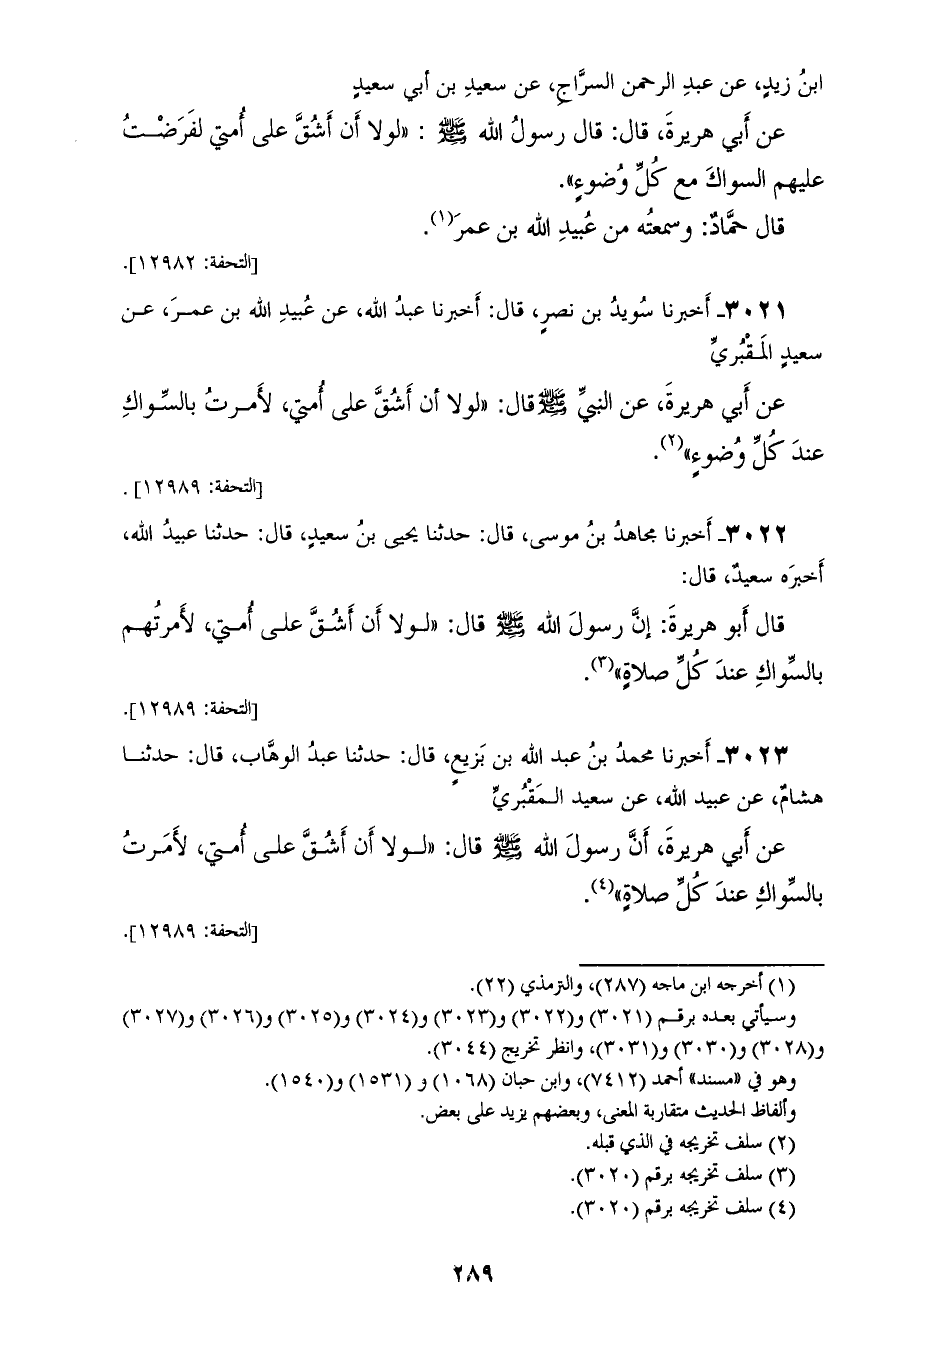 ابنُ زيدٍ، عن عبدِ الرحمن السرَّاجِ، عن سعيدِ بن أبي سعيدٍ
عن أَبي هريرةَ، قال: قال رسولُ الله ﷺ : «لولا أن أَشُقَّ على أُمتي لفَرَضْتُ
عليهم السواكَ مع كُلِّ وُضوءٍ».
قال حمَّادٌ: وسمعتُه من عُبيدِ الله بن عمرَ(١).
[التحفة: ١٢٩٨٢].
٣٠٢١ـ أَخبرنا سُويدُ بن نصرٍ، قال: أَخبرنا عبدُ الله، عن عُبيدِ الله بن عمرَ، عن
سعيدٍ المَقْبُريِّ
عن أَبي هريرةَ، عن النبيِّ ﷺ قال: «لولا أن أَشُقَّ على أُمتي، لأَمرتُ بالسِّواكِ
عندَ كُلِّ وُضوءٍ»(٢).
[التحفة: ١٢٩٨٩].
٣٠٢٢ـ أَخبرنا مجاهدُ بنُ موسى، قال: حدثنا يحيى بنُ سعيدٍ، قال: حدثنا عبيدُ الله،
أَخبرَه سعيدٌ، قال:
قال أَبو هريرةَ: إنَّ رسولَ الله ﷺ قال: «لولا أن أَشُقَّ على أُمتي، لأَمرتُهم
بالسِّواكِ عندَ كُلِّ صلاةٍ»(٣).
[التحفة: ١٢٩٨٩].
٣٠٢٣ـ أَخبرنا محمدُ بنُ عبد الله بن بَزيعٍ، قال: حدثنا عبدُ الوهَّاب، قال: حدثنا
هشامٌ، عن عبيد الله، عن سعيد المَقْبُريِّ
عن أَبي هريرةَ، أَنَّ رسولَ الله ﷺ قال: «لولا أن أَشُقَّ على أُمتي، لأَمَرتُ
بالسِّواكِ عندَ كُلِّ صلاةٍ»(٤).
[التحفة: ١٢٩٨٩].
(١) أخرجه ابن ماجه (٢٨٧)، والترمذي (٢٢).
وسيأتي بعده برقم (٣٠٢١) و(٣٠٢٢) و(٣٠٢٣) و(٣٠٢٤) و(٣٠٢٥) و(٣٠٢٦) و(٣٠٢٧)
و(٣٠٢٨) و(٣٠٣٠) و(٣٠٣١)، وانظر تخريج (٣٠٤٤).
وهو في «مسند» أحمد (٧٤١٢)، وابن حبان (١٠٦٨) و (١٥٣١) و(١٥٤٠).
وألفاظ الحديث متقاربة المعنى، وبعضهم يزيد على بعض.
(٢) سلف تخريجه في الذي قبله.
(٣) سلف تخريجه برقم (٣٠٢٠).
(٤) سلف تخريجه برقم (٣٠٢٠).
٢٨٩